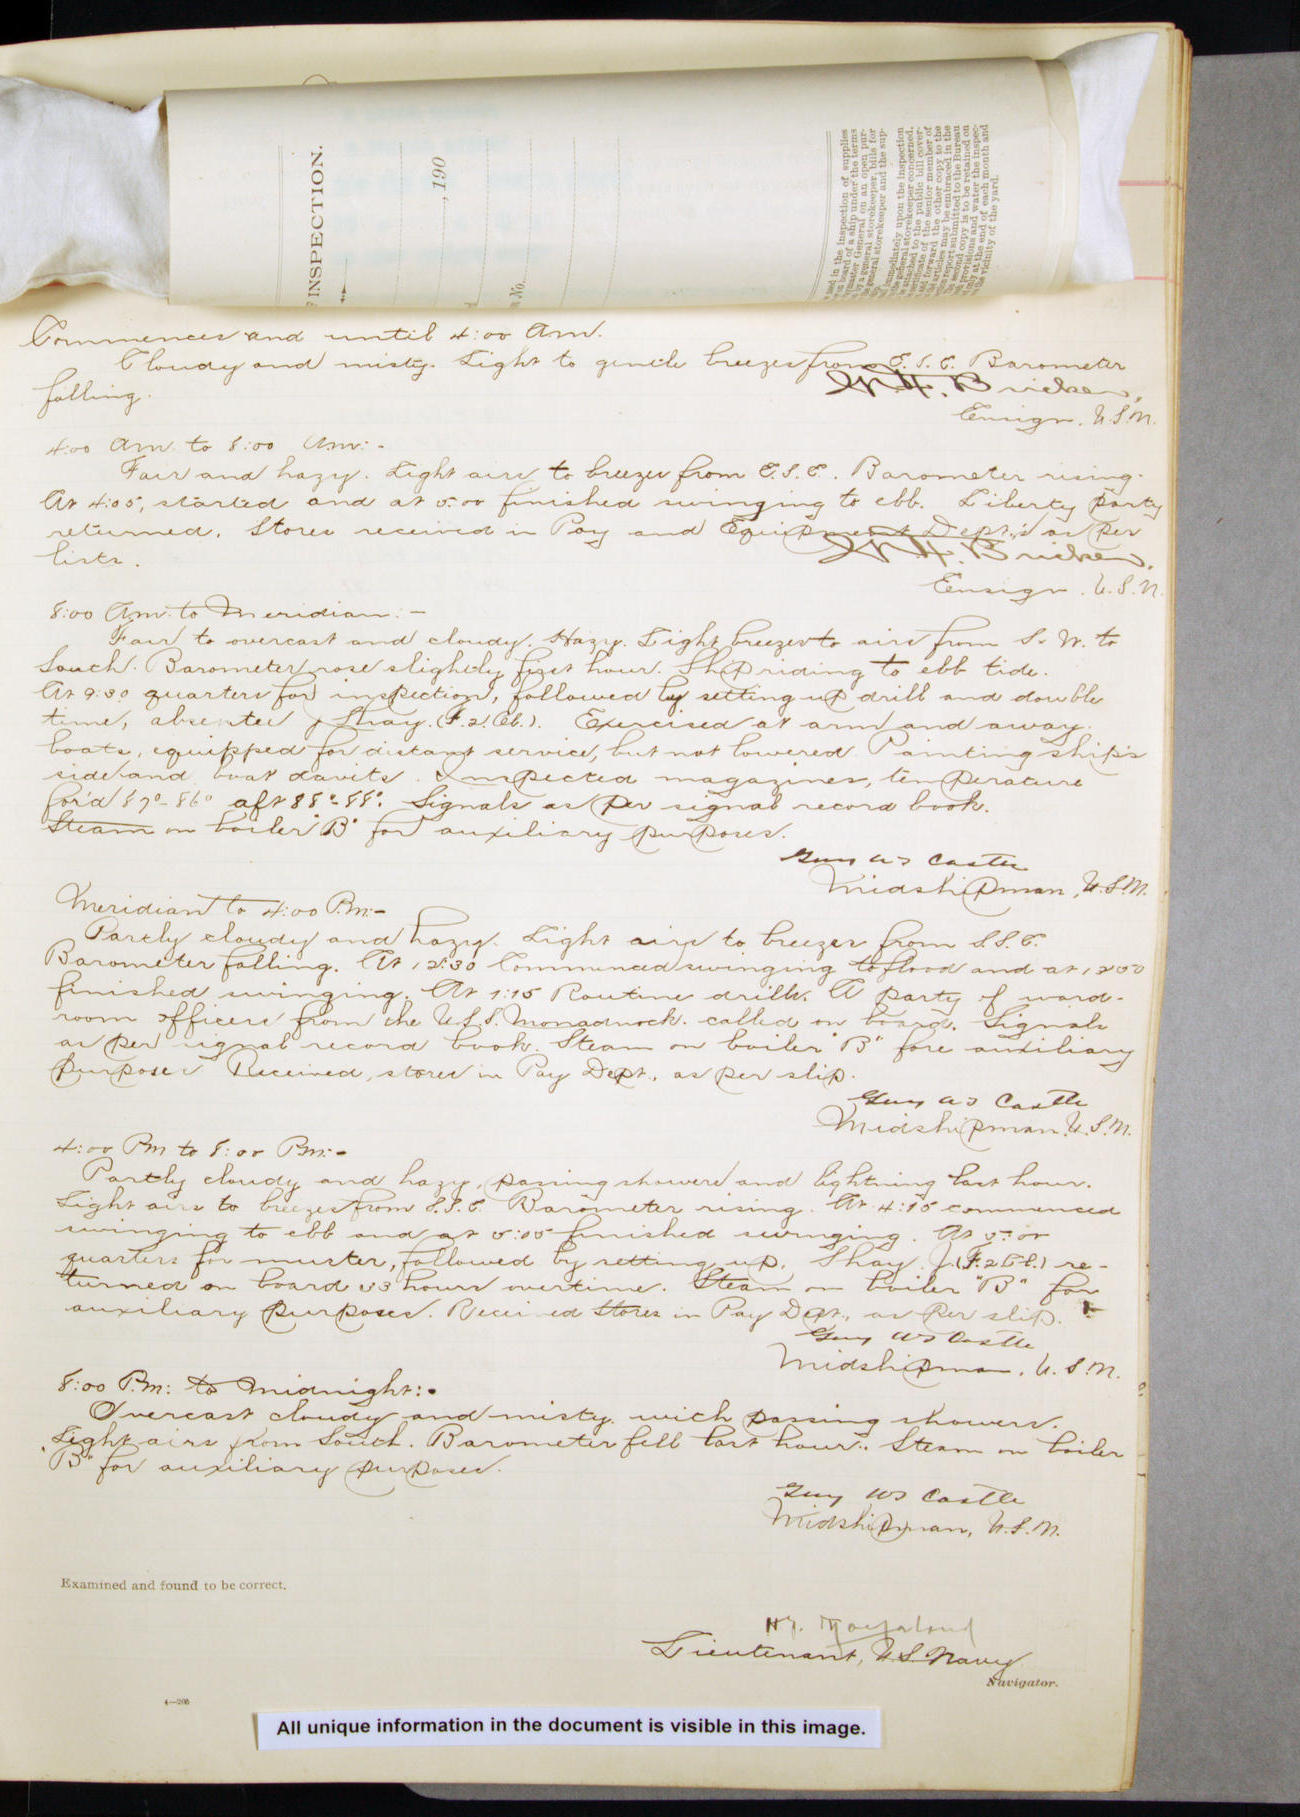 INSPECTION.
, 190
No.
sed in the inspection of supplies
on board of a ship under the terms
master General on an open pur-
by a general storekeeper, bills for
general storekeeper and the sup-
immediately upon the inspection
the general storekeeper concerned.
attached to the public bill cover-
certificate of the senior member of
and forward the other copy to the
articles may be embraced in the
report submitted to the Bureau
second copy is to be retained on
provisions and water the inspec-
only at the end of each month and
the vicinity of the yard.
Commences and until 4:00 Am.
Cloudy and misty. Light to gentle breezes from E.S.E. Barometer
falling.
W. H. Bricker,
Ensign. U.S.N.
4:00 Am to 8:00 Am:-
Fair and hazy. Light airs to breezes from E.S.E. Barometer rising.
At 4:05, started and at 5:00 finished swinging to ebb. Liberty party
returned. Stores received in Pay and Equipment Dept.'s as per
lists.
W. H. Bricker,
Ensign. U.S.N.
8:00 Am. to Meridian:-
Fair to overcast and cloudy. Hazy. Light breezes to airs from S. W. to
South. Barometer rose slightly first hour. Ship riding to ebb tide.
At 9:30 quarters for inspection, followed by setting up drill and double
time, absentee, Shay. (F.2.Cl.). Exercised at arm and away
boats, equipped for distant service, but not lowered. Painting ship's
side and boat davits. Inspected magazines, temperature
for'd 87°-86° aft 88°-88°. Signals as per signal record book.
Steam on boiler "B" for auxiliary purposes.
Guy W S Castle
Midshipman, U.S.N.
Meridian to 4:00 P.m:-
Partly cloudy and hazy. Light airs to breezes from S.S.E.
Barometer falling. At 12:30 Commenced swinging to flood and at 1250
finished swinging. At 1:15 Routine drills. A party of ward-
room officers from the U.S.S. Monadnock. called on board. Signals
as per signal record book. Steam on boiler "B" fore auxiliary
purposes Received, stores in Pay Dept., as per slip.
Guy W S Castle
Midshipman. U.S.N.
4:00 Pm to 8:00 Pm:-
Partly cloudy and hazy, passing showers and lightning last hour.
Light airs to breezes from S.S.E. Barometer rising. At 4:15 commenced
swinging to ebb and at 5:05 finished swinging. At 5:00
quarters for muster, followed by setting up. Shay J. (F.2Cl.) re-
turned on board 33 hours overtime. Steam on boiler "B" for
auxiliary purposes. Received Stores in Pay Dept., as per slip.
Guy W S Castle
Midshipman, U.S.N.
8:00 P.m: to Midnight:-
Overcast cloudy and misty. with passing showers.
Light airs from South. Barometer fell last hour. Steam on boiler
"B" for auxiliary purposes.
Guy W S Castle
Midshipman, U.S.N.
Examined and found to be correct.
Lieutenant, U.S. Navy
Navigator.
4—206
All unique information in the document is visible in this image.